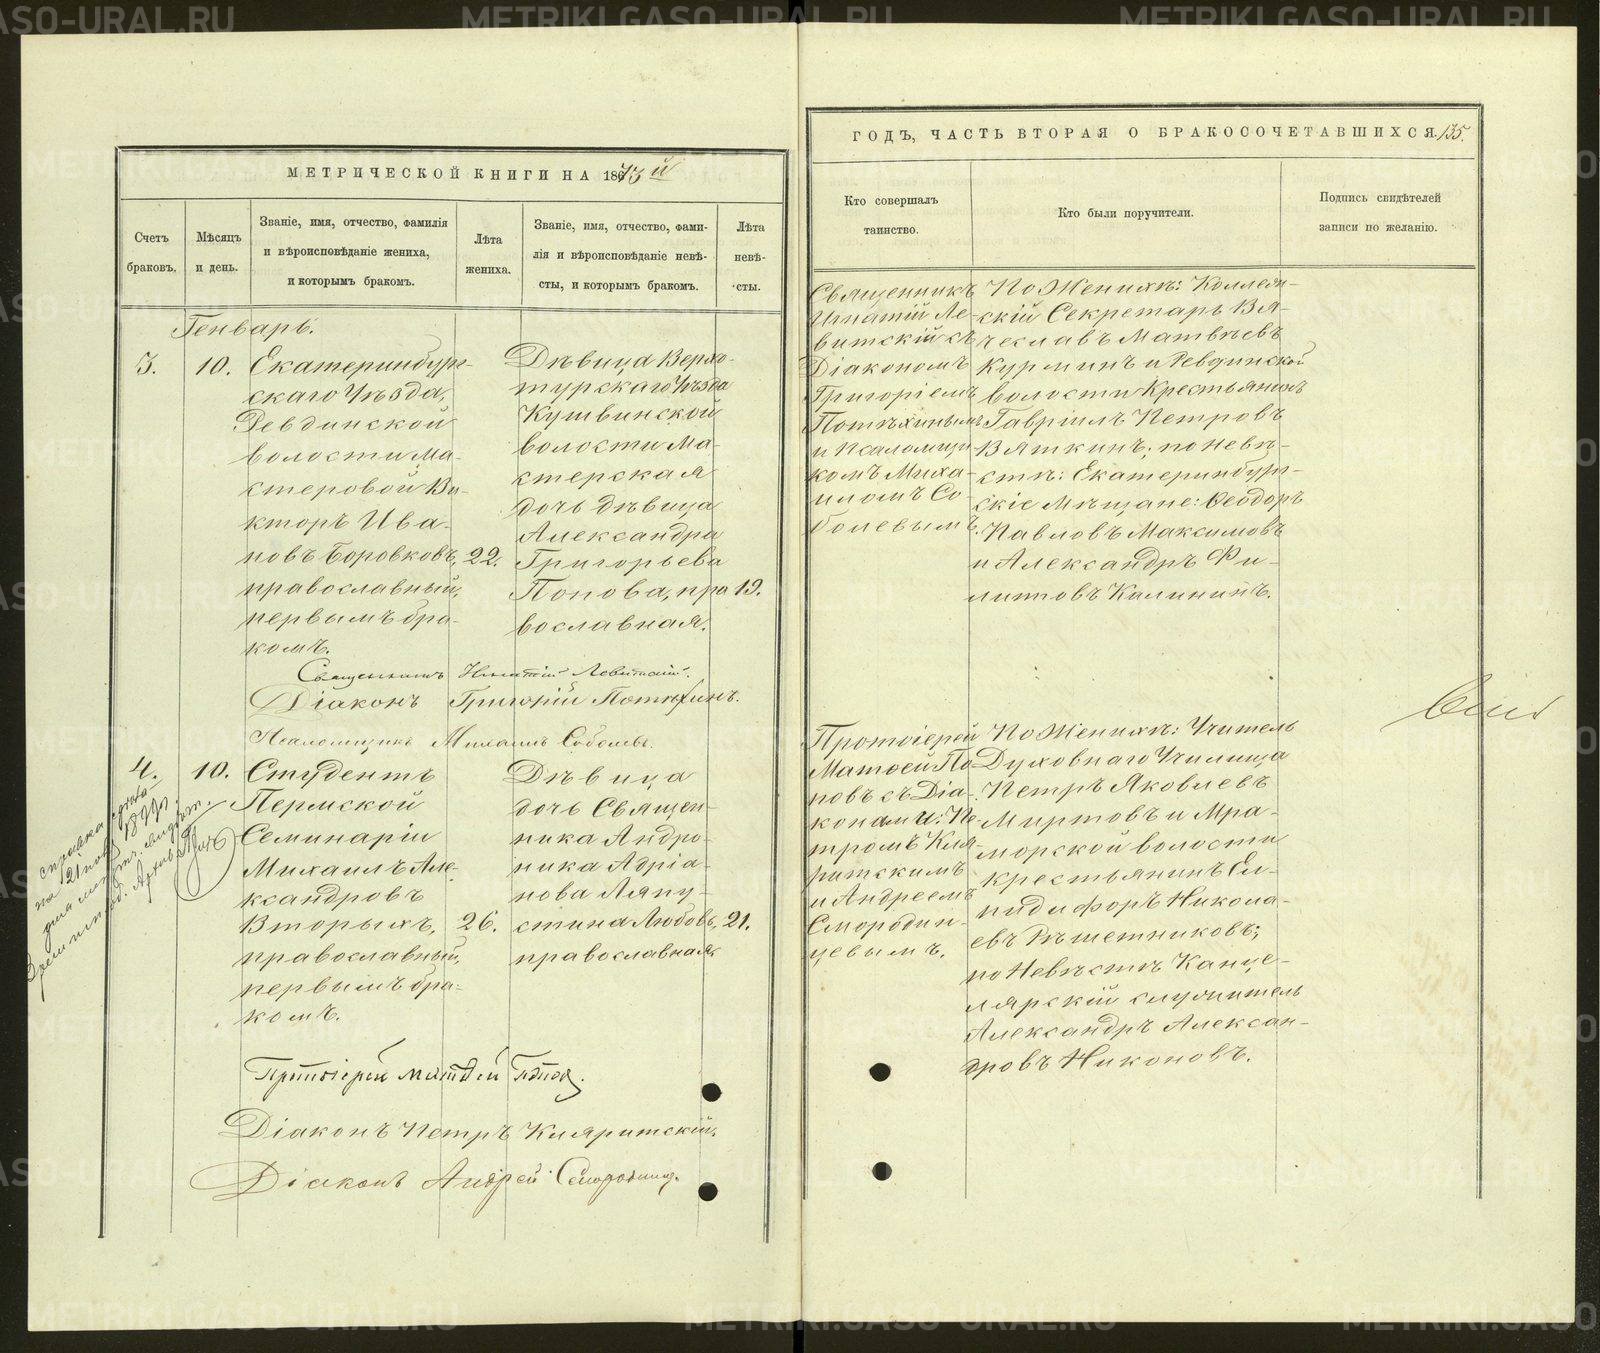 МЕТРИЧЕСКОЙ КНИГИ НА 1873й
Счетъ браковъ.
Мѣсяцъ и день.
Званіе, имя, отчество, фамилія
и вѣроисповѣданіе жениха,
и которымъ бракомъ.
Лѣта жениха.
Званіе, имя, отчество, фами-
лія и вѣроисповѣданіе невѣ-
сты, и которымъ бракомъ.
Лѣта невѣ-
сты.
Генварь.
3.
10.
Екатеринбург-
скаго Уѣзда,
Ревдинской
волости, Ма-
стеровой Ви-
кторъ Ива-
новъ Боровковъ,
православный,
первымъ бра-
комъ.
22.
Дѣвица Верхо-
турскаго Уѣзда
Кушвинской
волости Ма-
стерская
дочь дѣвица
Александра
Григорьева
Попова, пра
вославная.
19.
Священникъ Игнатій Левитскій.
Діаконъ Григорій Потѣхинъ.
Псаломщикъ Михаилъ Соболевъ.
4.
10.
Студентъ
Пермской
Семинаріи
Михаилъ Але-
ксандровъ
Вторыхъ,
православный,
первымъ бра-
комъ.
26.
Дѣвица
дочь Священ-
ника Андро-
ника Адріа-
нова Ляпу-
стина Любовь,
православная
21.
справка
Протоіерей Матѳей Поповъ.
Діаконъ Петръ Кляритскій.
Діаконъ Андрей Смородинц.
ГОДЪ, ЧАСТЬ ВТОРАЯ О БРАКОСОЧЕТАВШИХСЯ.
135.
Кто совершалъ
таинство.
Кто были поручители.
Подпись свидѣтелей
записи по желанію.
Священникъ
Игнатій Ле-
витскій съ
Діакономъ
Григоріемъ
Потѣхинымъ
и Псаломщи-
комъ Миха-
иломъ Со-
болевымъ.
По Женихѣ: Коллеж-
скій Секретарь Вя-
чеславъ Матвѣевъ
Курминъ и Ревдинской
волости Крестьянинъ
Гавріилъ Петровъ
Вяткинъ, по невѣ-
стѣ: Екатеринбург-
скіе Мѣщане: Ѳеодоръ
Павловъ Максимовъ
и Александръ Фи-
липповъ Калининъ.
Протоіерей
Матѳей По
повъ съ Діа-
конами: Пе-
тромъ Кля-
ритскимъ
и Андреемъ
Смородин-
цевымъ.
По Женихѣ: Учитель
Духовнаго Училища
Петръ Яковлевъ
Миртовъ и Мра-
морской волости
крестьянинъ Ел-
пидифоръ Никола-
евъ Рѣшетниковъ;
по Невѣстѣ Канце-
лярскій служитель
Александръ Алексан-
дровъ Никоновъ.